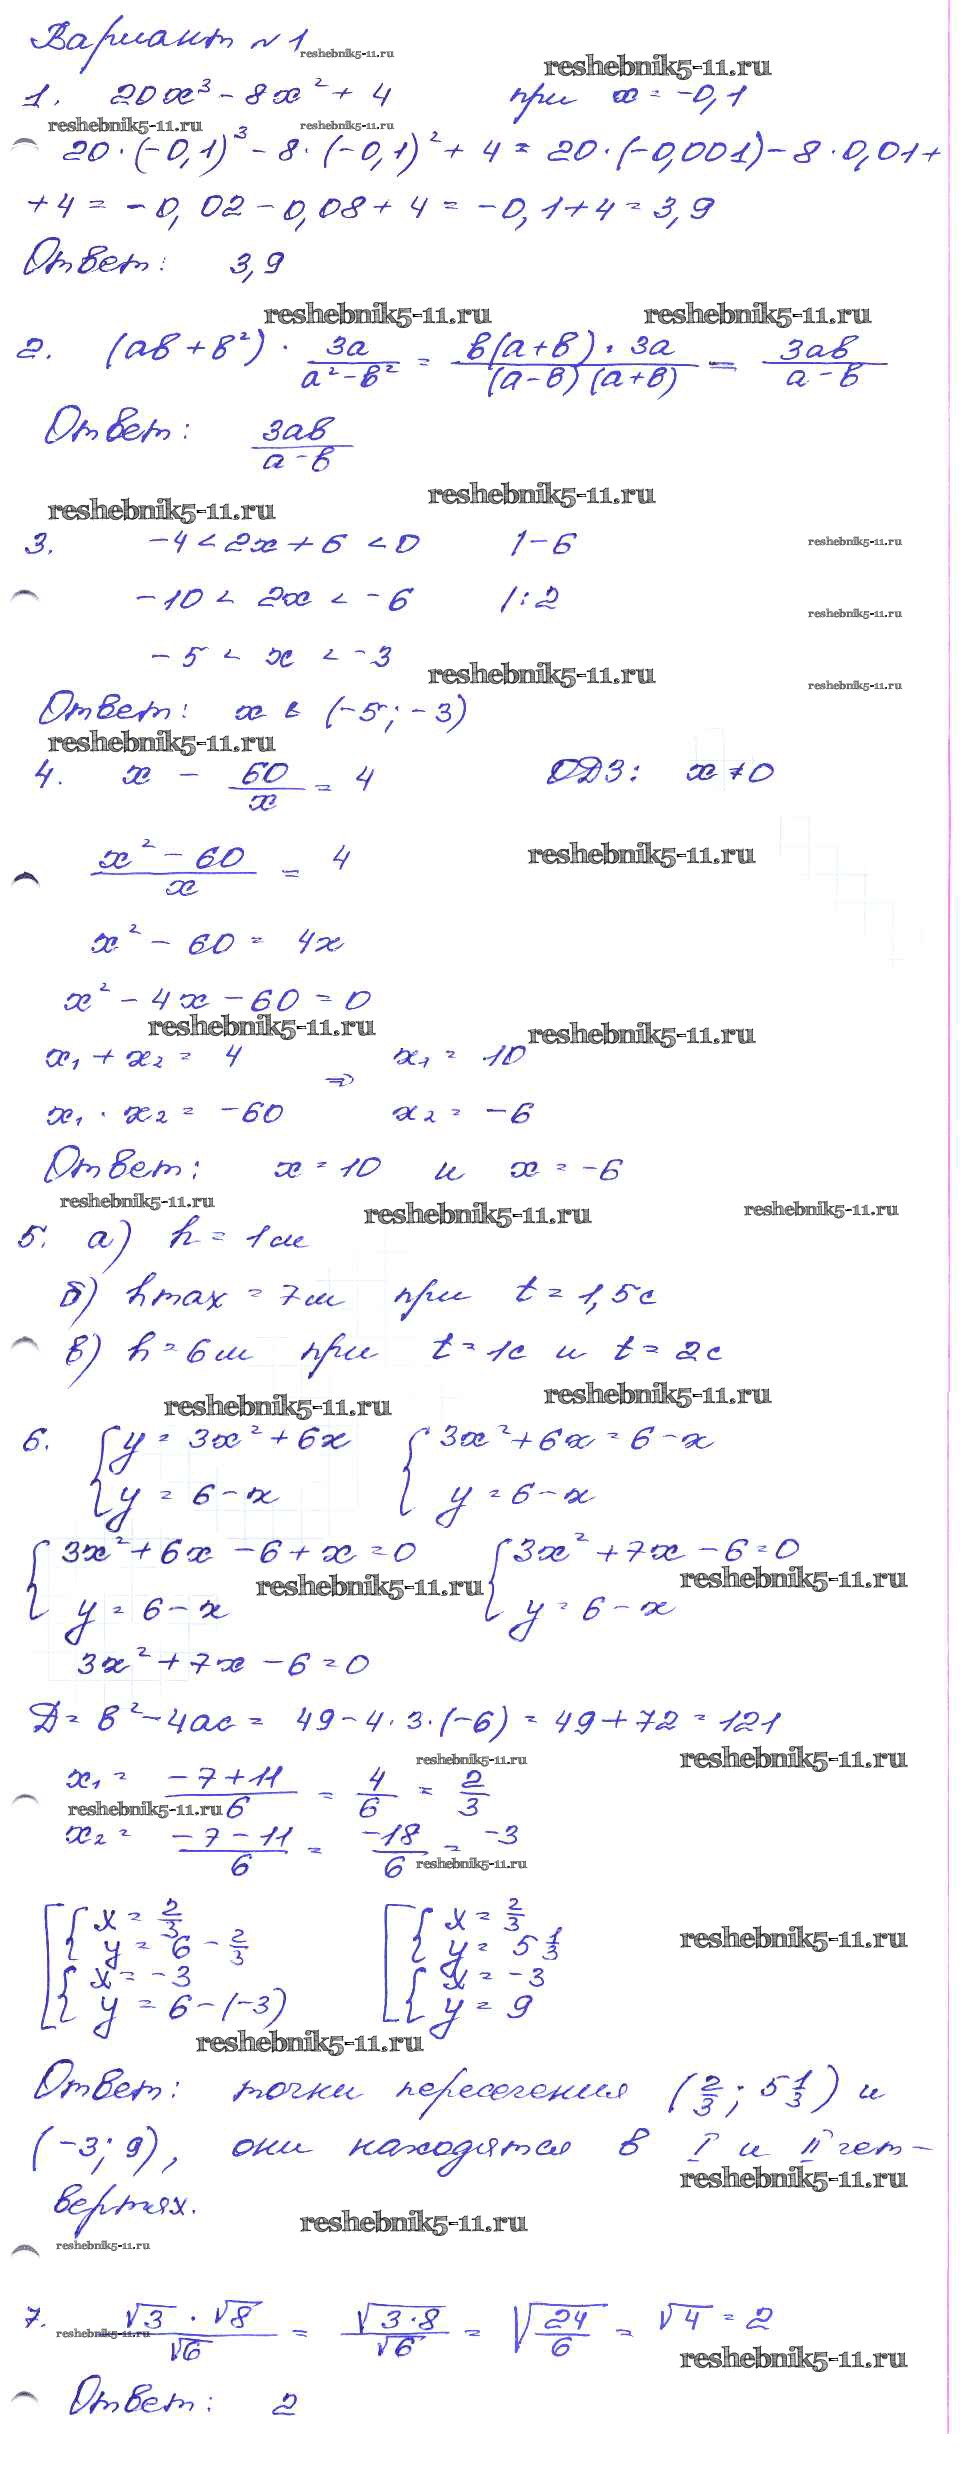 Вариант №1
reshebnik5-11.ru
reshebnik5-11.ru
1. 20x³ - 8x² + 4 при x = -0,1
reshebnik5-11.ru reshebnik5-11.ru
20·(-0,1)³ - 8·(-0,1)² + 4 = 20·(-0,001) - 8·0,01 +
+ 4 = -0,02 - 0,08 + 4 = -0,1 + 4 = 3,9
Ответ: 3,9
reshebnik5-11.ru reshebnik5-11.ru
2. (ab + b²) · 3a/(a² - b²) = b(a+b)·3a/((a-b)(a+b)) = 3ab/(a-b)
Ответ: 3ab/(a-b)
reshebnik5-11.ru reshebnik5-11.ru
3. -4 < 2x + 6 < 0 | -6
reshebnik5-11.ru
-10 < 2x < -6 | :2
reshebnik5-11.ru
-5 < x < -3
reshebnik5-11.ru reshebnik5-11.ru
Ответ: x ∈ (-5; -3)
reshebnik5-11.ru
4. x - 60/x = 4 ОДЗ: x ≠ 0
(x² - 60)/x = 4
reshebnik5-11.ru
x² - 60 = 4x
x² - 4x - 60 = 0
reshebnik5-11.ru reshebnik5-11.ru
x₁ + x₂ = 4 ⇒ x₁ = 10
x₁ · x₂ = -60 x₂ = -6
Ответ: x = 10 и x = -6
reshebnik5-11.ru reshebnik5-11.ru reshebnik5-11.ru
5. а) h = 1м
б) hmax = 7м при t = 1,5с
в) h = 6м при t = 1с и t = 2с
reshebnik5-11.ru reshebnik5-11.ru
6. { y = 3x² + 6x { 3x² + 6x = 6 - x
y = 6 - x y = 6 - x
{ 3x² + 6x - 6 + x = 0 { 3x² + 7x - 6 = 0
reshebnik5-11.ru reshebnik5-11.ru
y = 6 - x y = 6 - x
3x² + 7x - 6 = 0
Д = b² - 4ac = 49 - 4·3·(-6) = 49 + 72 = 121
reshebnik5-11.ru reshebnik5-11.ru
x₁ = (-7+11)/6 = 4/6 = 2/3
reshebnik5-11.ru
x₂ = (-7-11)/6 = -18/6 = -3
reshebnik5-11.ru
[ { x = 2/3 [ { x = 2/3
y = 6 - 2/3 y = 5 1/3
reshebnik5-11.ru
{ x = -3 { x = -3
y = 6 - (-3) y = 9
reshebnik5-11.ru
Ответ: точки пересечения (2/3; 5 1/3) и
(-3; 9), они находятся в I и II чет-
reshebnik5-11.ru
вертях.
reshebnik5-11.ru
reshebnik5-11.ru
7. √3 · √8/√6 = √(3·8)/√6 = √(24/6) = √4 = 2
reshebnik5-11.ru
reshebnik5-11.ru
Ответ: 2